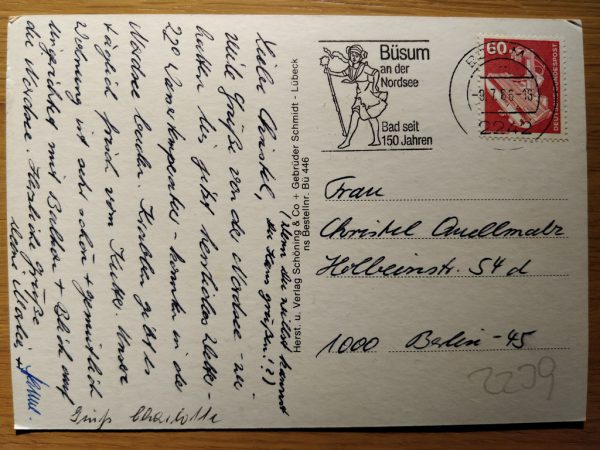 Liebe Christel,
viele Grüße von der Nordsee - wir
hatten bis jetzt herrliches Wetter -
22° Wassertemperatur - konnten in der
Nordsee baden. Krabben gibt es
täglich frisch vom Kutter. Unsere
Wohnung ist sehr schön + gemütlich
eingerichtet mit Balkon + Blick auf
die Nordsee. Herzliche Grüße
Deine
Gruß Charlotte
(wenn du willst kannst
du Hans grüßen!?)
Herst. u. Verlag Schöning & Co + Gebrüder Schmidt - Lübeck
ns Bestellnr. Bü 446
Büsum
an der
Nordsee
Bad seit
150 Jahren
-9.7.86-18
2242
60
DEUTSCHE BUNDESPOST
Frau
Christel Quellmalz
Holbeinstr. 54 d
1000 Berlin-45
2209